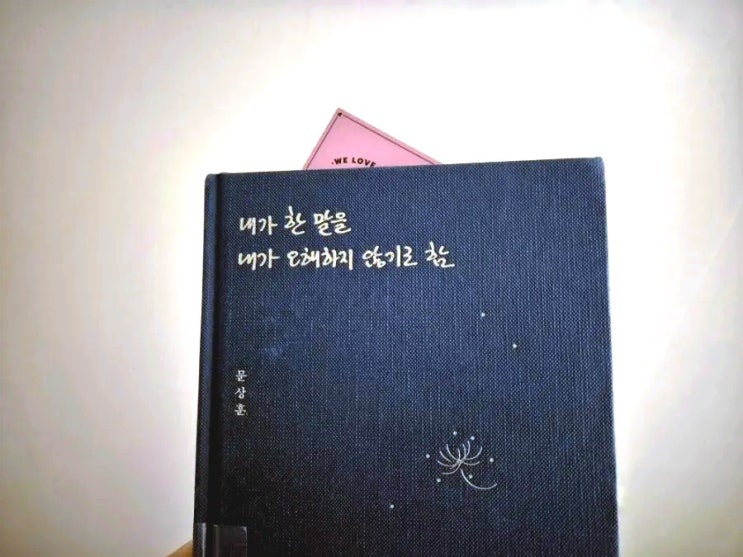 ·WE LOVE
내가 한 말을
내가 오해하지 않기로 함
문상훈